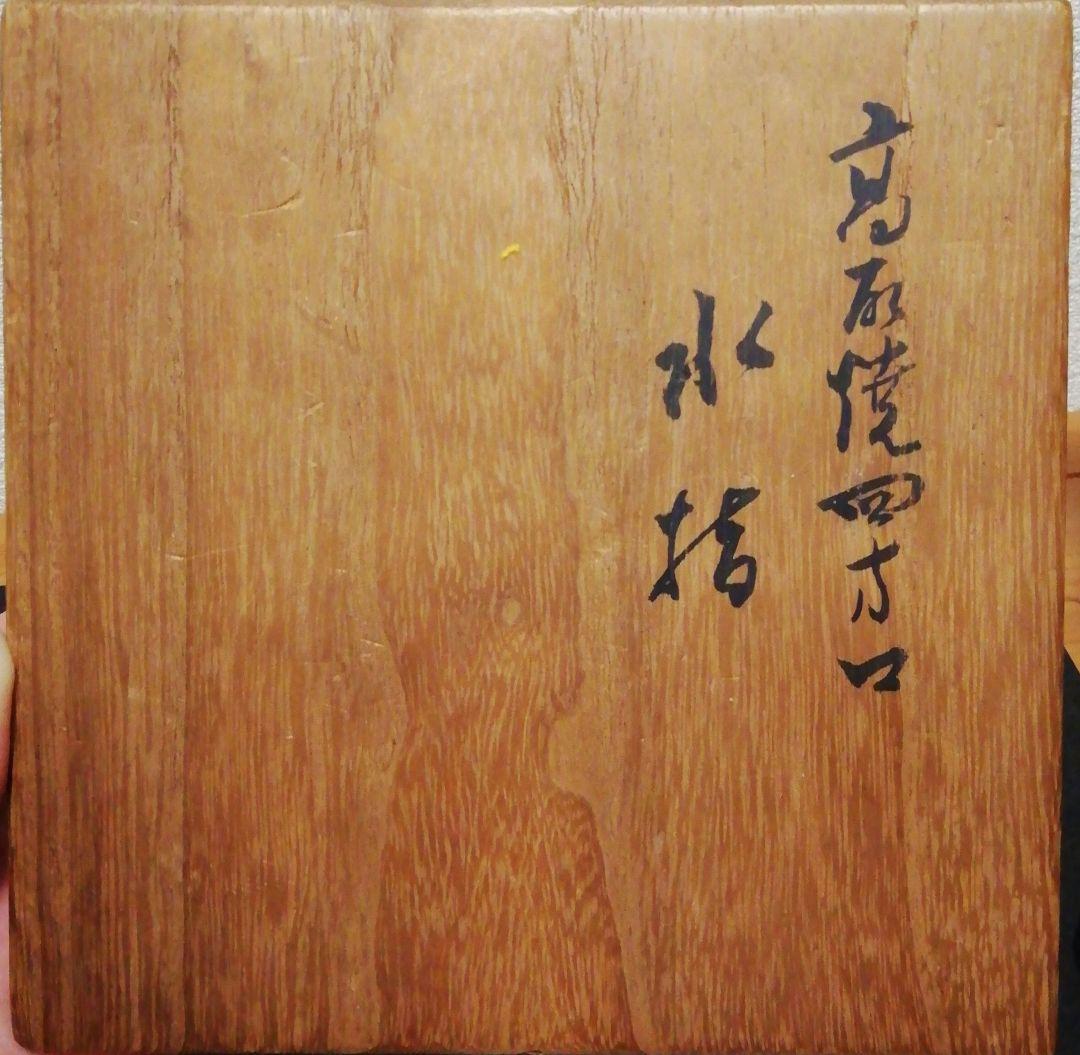 高取焼四方口
水指